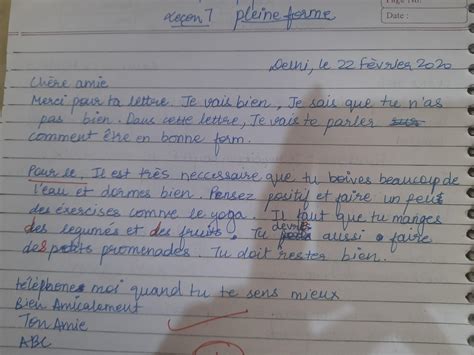 Page No.
Date :
Leçon 7 pleine forme
Delhi, le 22 Février 2020
Chère amie
Merci pour ta lettre. Je vais bien, Je sais que tu n'as
pas bien. Dans cette lettre, Je vais te parler sur
comment être en bonne form.
Pour le, Il est très neccessaire que tu boives beaucoup de
l'eau et dormes bien. Pensez positif et faire un peu
des éxercises comme le yoga. Il faut que tu manges
des legumés et des fruits. Tu devrais aussi faire
des petits promenades. Tu doit rester bien.
téléphones moi quand tu te sens mieux
Bien Amicalement
Ton Amie
ABC